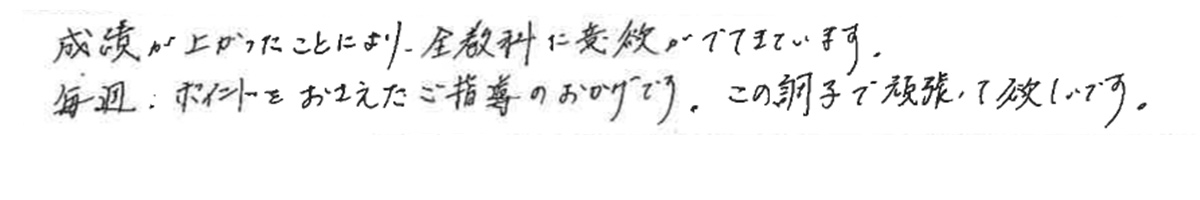 成績が上がったことにより、全教科に意欲がでてきています。
毎週、ポイントをおさえたご指導のおかげです。この調子で頑張って欲しいです。